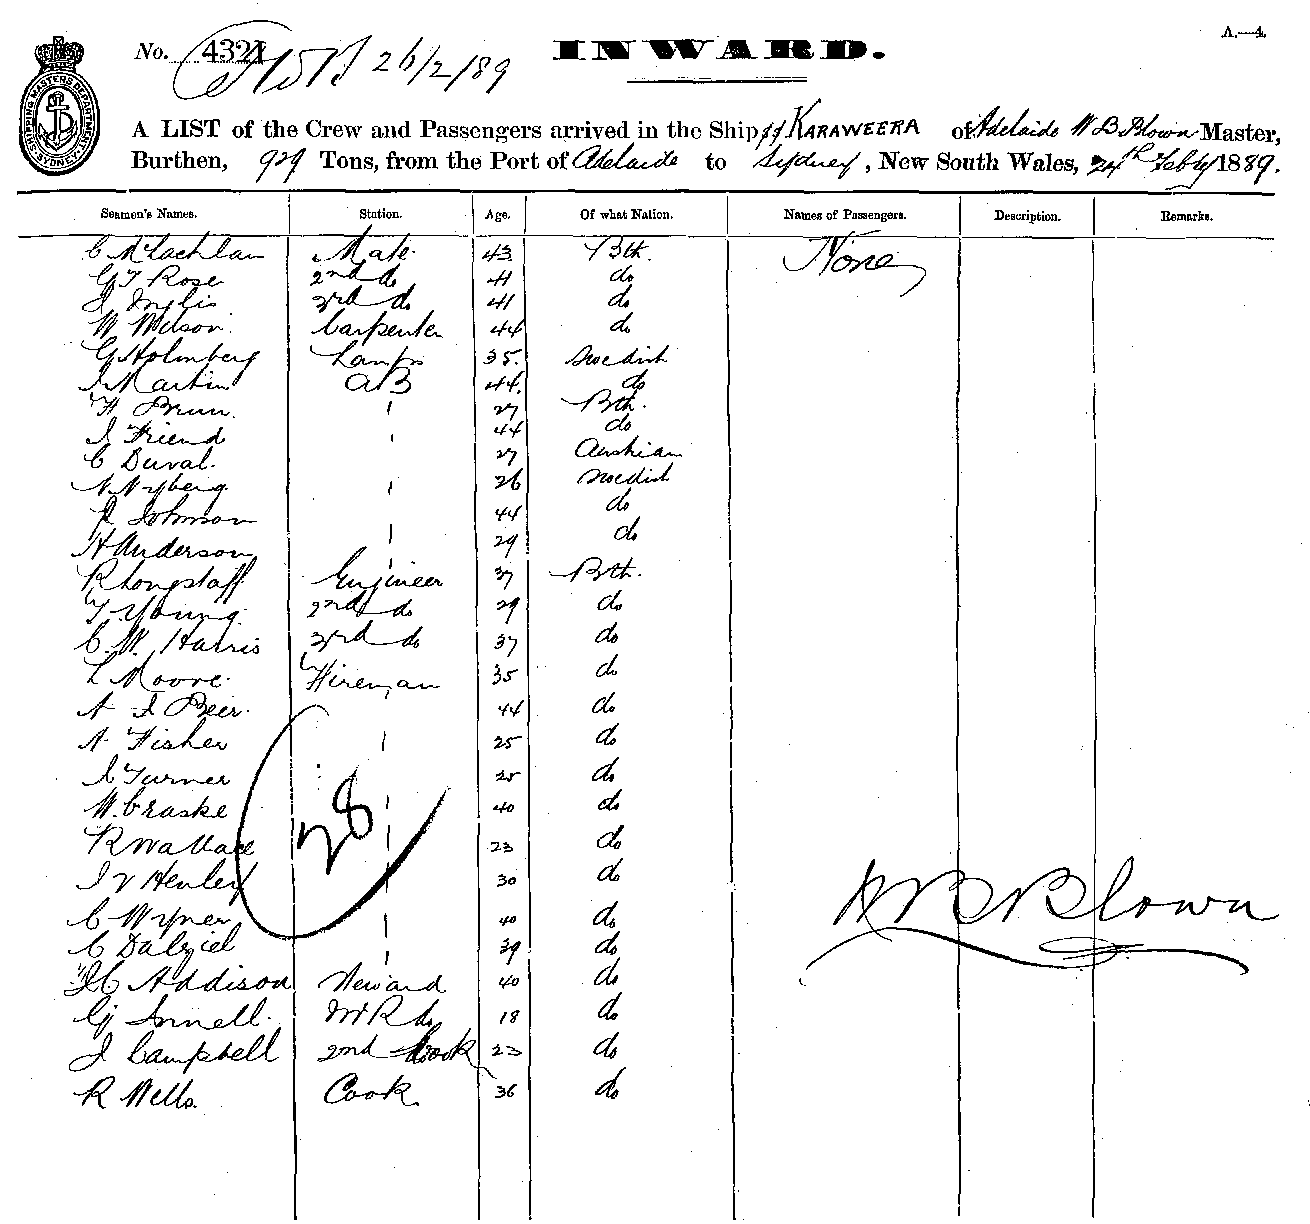 A.—4.
No. 4321 26/2/89 INWARD.
SHIPPING MASTERS DEPARTMENT SYDNEY
A LIST of the Crew and Passengers arrived in the Ship SS KARAWEERA of Adelaide W B Blown Master,
Burthen, 929 Tons, from the Port of Adelaide to Sydney, New South Wales, 24th Feby 1889.
Seamen's Names. Station. Age. Of what Nation. Names of Passengers. Description. Remarks.
C McLachlan Mate 43 Bth. None
G T Rose 2nd do 41 do
J Inglis 3rd do 41 do
W Wilson Carpenter 44 do
G Holmberg Lamps 35. Swedish
J Martin AB 44. do
H Brun. " 27 Bth.
J Friend " 44 do
C Duval. 27 Austrian
N Nyberg " 26 Swedish
J Johnson 44 do
H Anderson " 29 do
R Longstaff Engineer 37 Bth.
T Young 2nd do 29 do
C. W. Harris 3rd do 37 do
L Moore. Fireman 35 do
A J Beer. 44 do
A Fisher " 25 do
J Turner 25 do
W. Craske " 40 do
R Wallace 23 do
28
J V Henley 30 do
C Wyner " 40 do
C Dalziel " 39 do
W B Blown
H C Addison Steward 40 do
G Snell. M R do 18 do
J Campbell 2nd Cook 23 do
R Wells. Cook. 36 do